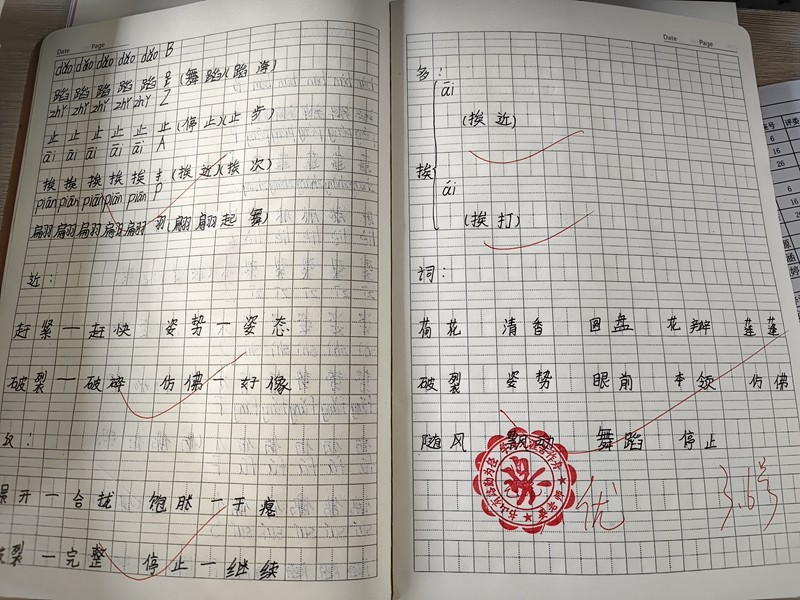 Date Page
dǎo dǎo dǎo dǎo dǎo B
蹈 蹈 蹈 蹈 蹈 (舞蹈)(蹈海)
zhǐ zhǐ zhǐ zhǐ zhǐ Z
止 止 止 止 止 止 (停止)(止步)
āi āi āi āi āi A
挨 挨 挨 挨 挨 扌 (挨近)(挨次)
piān piān piān piān piān P
翩 翩 翩 翩 翩 羽 (翩翩起舞)
近:
赶紧—赶快 姿势—姿态
破裂—破碎 仿佛—好像
反:
展开—合拢 饱胀—干瘪
破裂—完整 停止—继续
Date Page
多:
挨
āi
(挨近)
ái
(挨打)
词:
荷花 清香 圆盘 花瓣 莲蓬
破裂 姿势 眼前 本领 仿佛
随风 飘动 舞蹈 停止
优 3.6号